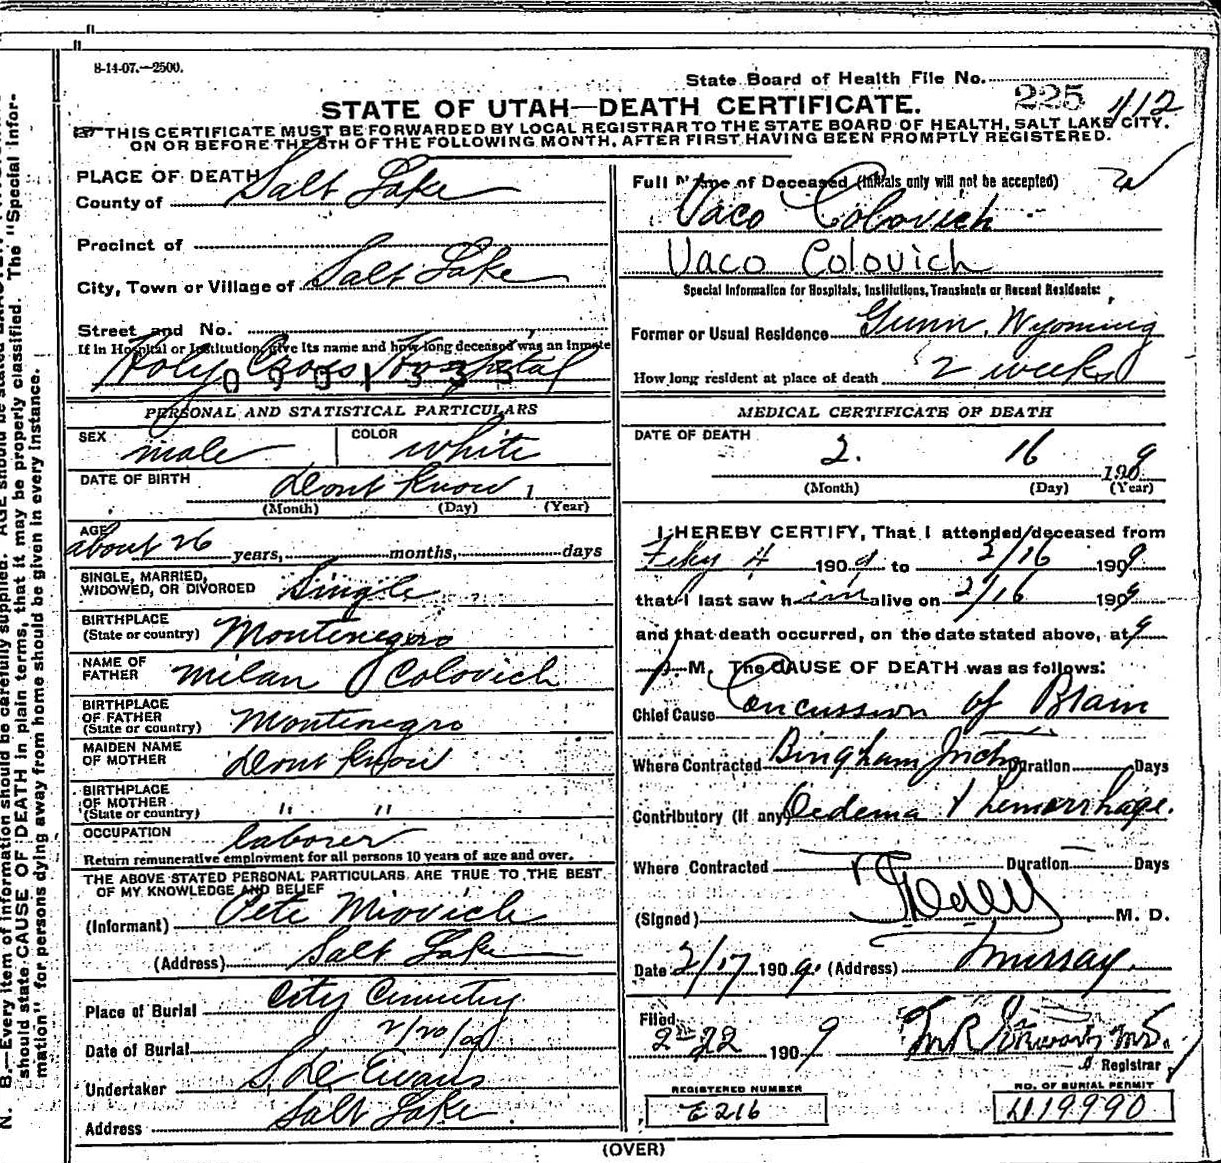 8-14-07.—2500.
State Board of Health File No.
225 112
STATE OF UTAH—DEATH CERTIFICATE.
THIS CERTIFICATE MUST BE FORWARDED BY LOCAL REGISTRAR TO THE STATE BOARD OF HEALTH, SALT LAKE CITY,
ON OR BEFORE THE 5TH OF THE FOLLOWING MONTH, AFTER FIRST HAVING BEEN PROMPTLY REGISTERED.
PLACE OF DEATH
County of Salt Lake
Precinct of
City, Town or Village of Salt Lake
Street and No.
If in Hospital or Institution, give its name and how long deceased was an inmate
Holy Cross Hospital
PERSONAL AND STATISTICAL PARTICULARS
SEX male COLOR white
DATE OF BIRTH Dont Know 1
(Month) (Day) (Year)
AGE about 26 years, months, days
SINGLE, MARRIED,
WIDOWED, OR DIVORCED Single
BIRTHPLACE
(State or country) Montenegro
NAME OF
FATHER Milan Colovich
BIRTHPLACE
OF FATHER
(State or country) Montenegro
MAIDEN NAME
OF MOTHER Dont Know
BIRTHPLACE
OF MOTHER
(State or country) " "
OCCUPATION laborer
Return remunerative employment for all persons 10 years of age and over.
THE ABOVE STATED PERSONAL PARTICULARS ARE TRUE TO THE BEST
OF MY KNOWLEDGE AND BELIEF
(Informant) Pete Miovich
(Address) Salt Lake
Place of Burial City Cemetery
Date of Burial 2/20/09
Undertaker S. De Evans
Address Salt Lake
Full Name of Deceased (Initials only will not be accepted)
Vaco Colovich
Vaco Colovich
Special Information for Hospitals, Institutions, Transients or Recent Residents:
Former or Usual Residence Gunn, Wyoming
How long resident at place of death 2 weeks
MEDICAL CERTIFICATE OF DEATH
DATE OF DEATH
2. 16 1909
(Month) (Day) (Year)
I HEREBY CERTIFY, That I attended deceased from
Feby 4 1909 to 2/16 1909
that I last saw him alive on 2/16 1909
and that death occurred, on the date stated above, at 9
p. M. The CAUSE OF DEATH was as follows:
Chief Cause Concussion of Brain
Where Contracted Bingham Duration Days
Contributory (if any) Oedema & hemorrhage.
Where Contracted Duration Days
(Signed) M. D.
Date 2/17 1909. (Address) Murray.
Filed
2 22 1909
Registrar
REGISTERED NUMBER
E 216
NO. OF BURIAL PERMIT
419990
(OVER)
N. B.—Every item of information should be carefully supplied. AGE should be stated
should state CAUSE OF DEATH in plain terms, that it may be properly classified. The "Special Infor-
mation" for persons dying away from home should be given in every instance.